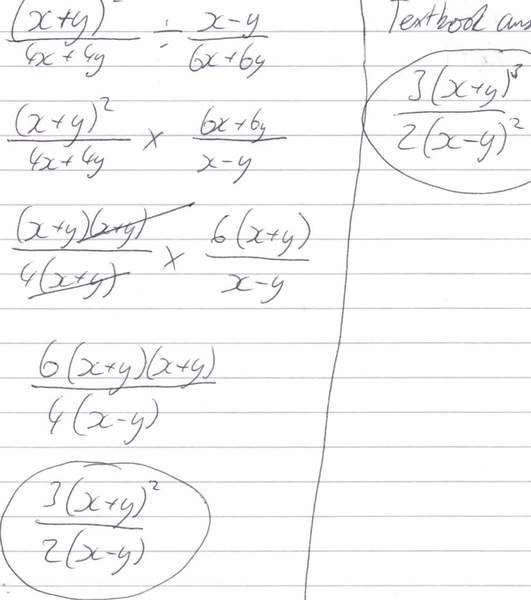 (x+y)² / 4x+4y ÷ x-y / 6x+6y
(x+y)² / 4x+4y × 6x+6y / x-y
(x+y)(x+y) / 4(x+y) × 6(x+y) / x-y
6(x+y)(x+y) / 4(x-y)
3(x+y)² / 2(x-y)
Textbook ans
3(x+y)³ / 2(x-y)²